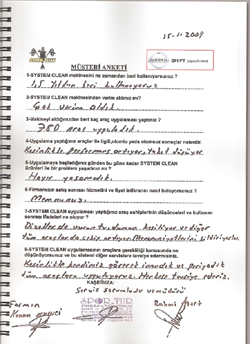 15-1-2009
MÜŞTERİ ANKETİ
1-SYSTEM CLEAN makinesini ne zamandan beri kullanıyorsunuz ?
1,5 Yıldan beri kullanıyoruz
2-SYSTEM CLEAN makinesinden verim aldınız mı?
Çok verim aldık.
3-Makineyi aldığınızdan beri kaç araç uygulaması yaptınız ?
750 araç uyguladık.
4-Uygulamaya yaptığınız araçlar ile ilgili, olumlu yada olumsuz sonuçlar nelerdir.
Kesinlikle performans artıyor. Yakıt düşüyor
5-Uygulamaya başladığınız günden bu güne kadar SYSTEM CLEAN
ürünleri ile bir problem yaşadınız mı ?
Hayır yaşamadık.
6-Firmamızın satış sonrası hizmetini ve fiyat istikrarını nasıl buluyorsunuz ?
Memnunuz.
7-SYSTEM CLEAN uygulaması yaptığınız araç sahiplerinin düşünceleri ve kullanım
sonrası ifadeleri ne oluyor ?
Dizellerde vuruntudumanı kesiliyor ve diğer
tüm araçlarda çekiş artıyor. Memnuniyetlerini bildiriyorlar.
8-SYSTEM CLEAN uygulamasının araçlara gerekliliği konusunda ne
düşünüyorsunuz ve bu sistemi diğer servislere tavsiye edermisiniz.
Kesinlikle kendimiz görerek inandık ve periyodik
tüm araçlara uyguluyoruz. Herkese tavsiye ederiz.
KAŞE/İMZA
Servis sorumlusu ve müdürü